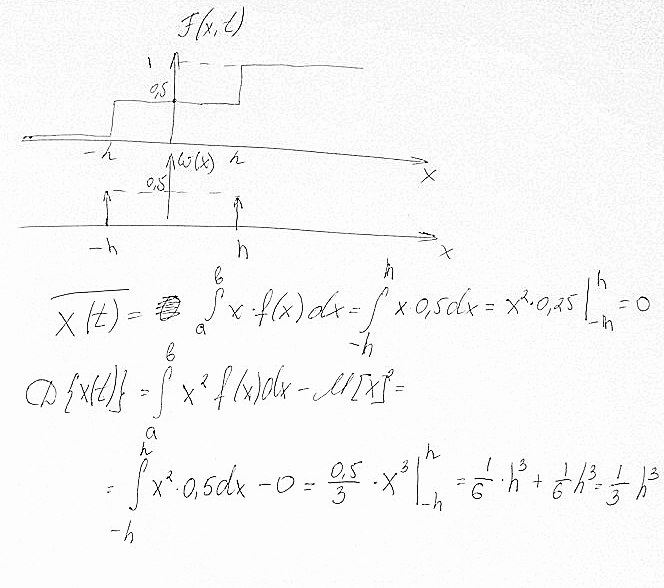 F(x,t)
1
0,5
-h h x
ω(x)
0,5
-h h x
X(t) = ∫ₐᵇ x·f(x)dx = ∫₋ₕʰ x 0,5dx = x²·0,25 |₋ₕʰ = 0
D{x(t)} = ∫ₐᵇ x² f(x)dx - M[x]² =
= ∫₋ₕʰ x²·0,5dx - 0 = 0,5/3 · x³ |₋ₕʰ = 1/6 · h³ + 1/6 h³ = 1/3 h³